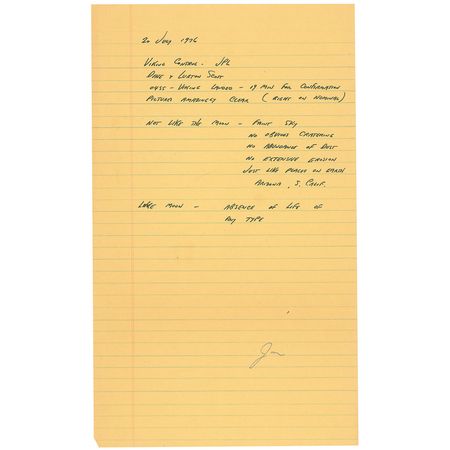 20 July 1976
VIKING CONTROL - JPL
DAVE & LURTON SCOTT
0455 - VIKING LANDED - 19 MIN FOR CONFIRMATION
PICTURES AMAZINGLY CLEAR (RIGHT ON NOMINAL)
NOT LIKE THE MOON - FAINT SKY
NO OBVIOUS CRATERING
NO ABUNDANCE OF DUST
NO EXTENSIVE EROSION
JUST LIKE PLACES ON EARTH
ARIZONA, S. CALIF.
LIKE MOON - ABSENCE OF LIFE OF
ANY TYPE
Jim